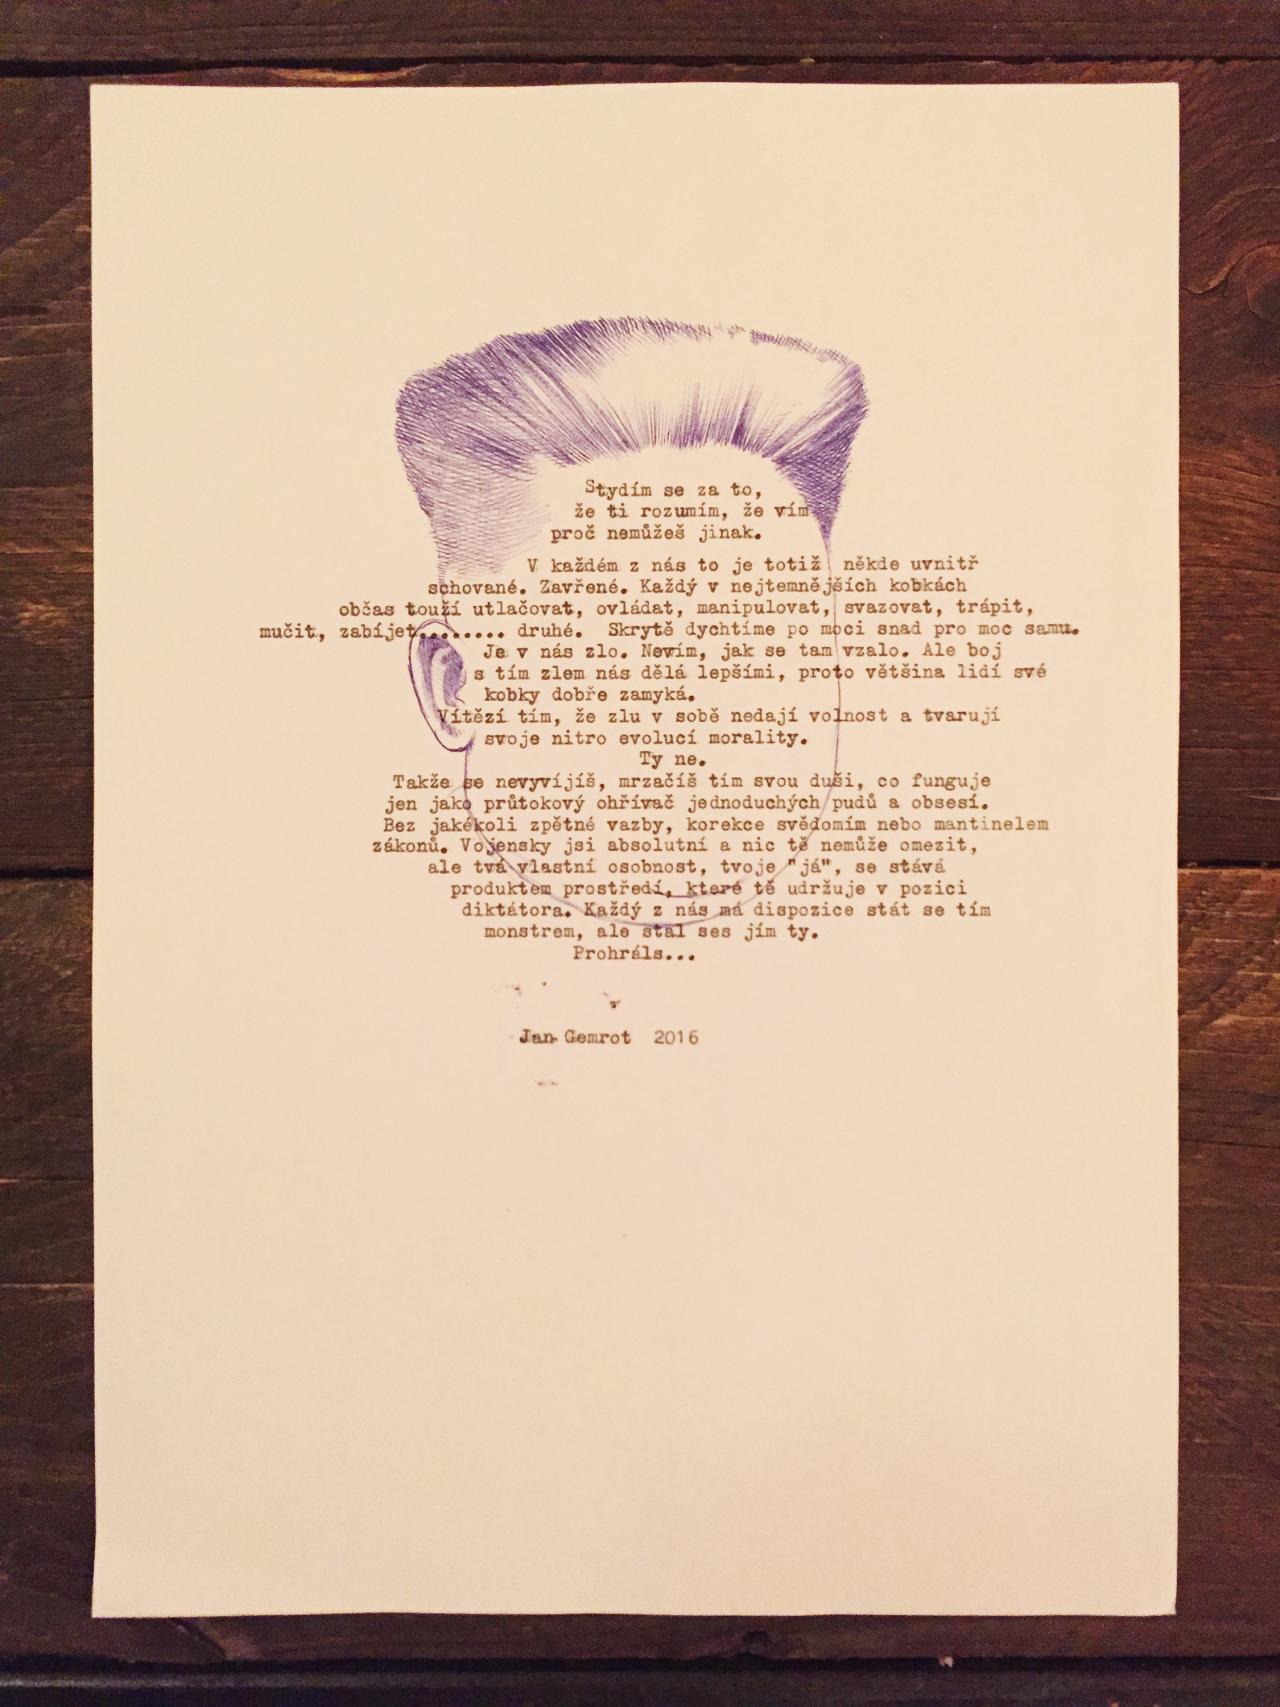 Stydím se za to,
že ti rozumím, že vím
proč nemůžeš jinak.
V každém z nás to je totiž někde uvnitř
schované. Zavřené. Každý v nejtemnějších kobkách
občas touží utlačovat, ovládat, manipulovat, svazovat, trápit,
mučit, zabíjet........ druhé. Skrytě dychtíme po moci snad pro moc samu.
Je v nás zlo. Nevím, jak se tam vzalo. Ale boj
s tím zlem nás dělá lepšími, proto většina lidí své
kobky dobře zamyká.
Vítězí tím, že zlu v sobě nedají volnost a tvarují
svoje nitro evolucí morality.
Ty ne.
Takže se nevyvíjíš, mrzačíš tím svou duši, co funguje
jen jako průtokový ohřívač jednoduchých pudů a obsesí.
Bez jakékoli zpětné vazby, korekce svědomím nebo mantinelem
zákonů. Vojensky jsi absolutní a nic tě nemůže omezit,
ale tvá vlastní osobnost, tvoje "já", se stává
produktem prostředí, které tě udržuje v pozici
diktátora. Každý z nás má dispozice stát se tím
monstrem, ale stal ses jím ty.
Prohráls...
Jan Gemrot 2016